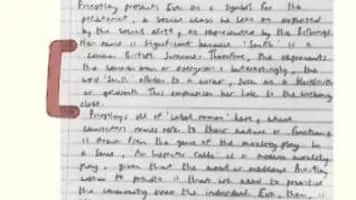 Priestley presents Eva as a symbol for the
proletariat, a social class we see as exploited
by the social elite, as represented by the Birlings.
Her name is significant because 'Smith' is a
common British surname. Therefore, she represents
the common man or everyman. Interestingly, the
word 'Smith' alludes to a worker, such as a blacksmith
or goldsmith. This emphasises her link to the working
class.
Priestley's use of 'label names' here, where
characters names refer to their nature or function,
is drawn from the genre of the morality play. In
a sense, An Inspector Calls is a modern morality
play, given that the moral message Priestley
wishes to promote is that we need to prioritise
the community over the individual. Eva, then, is